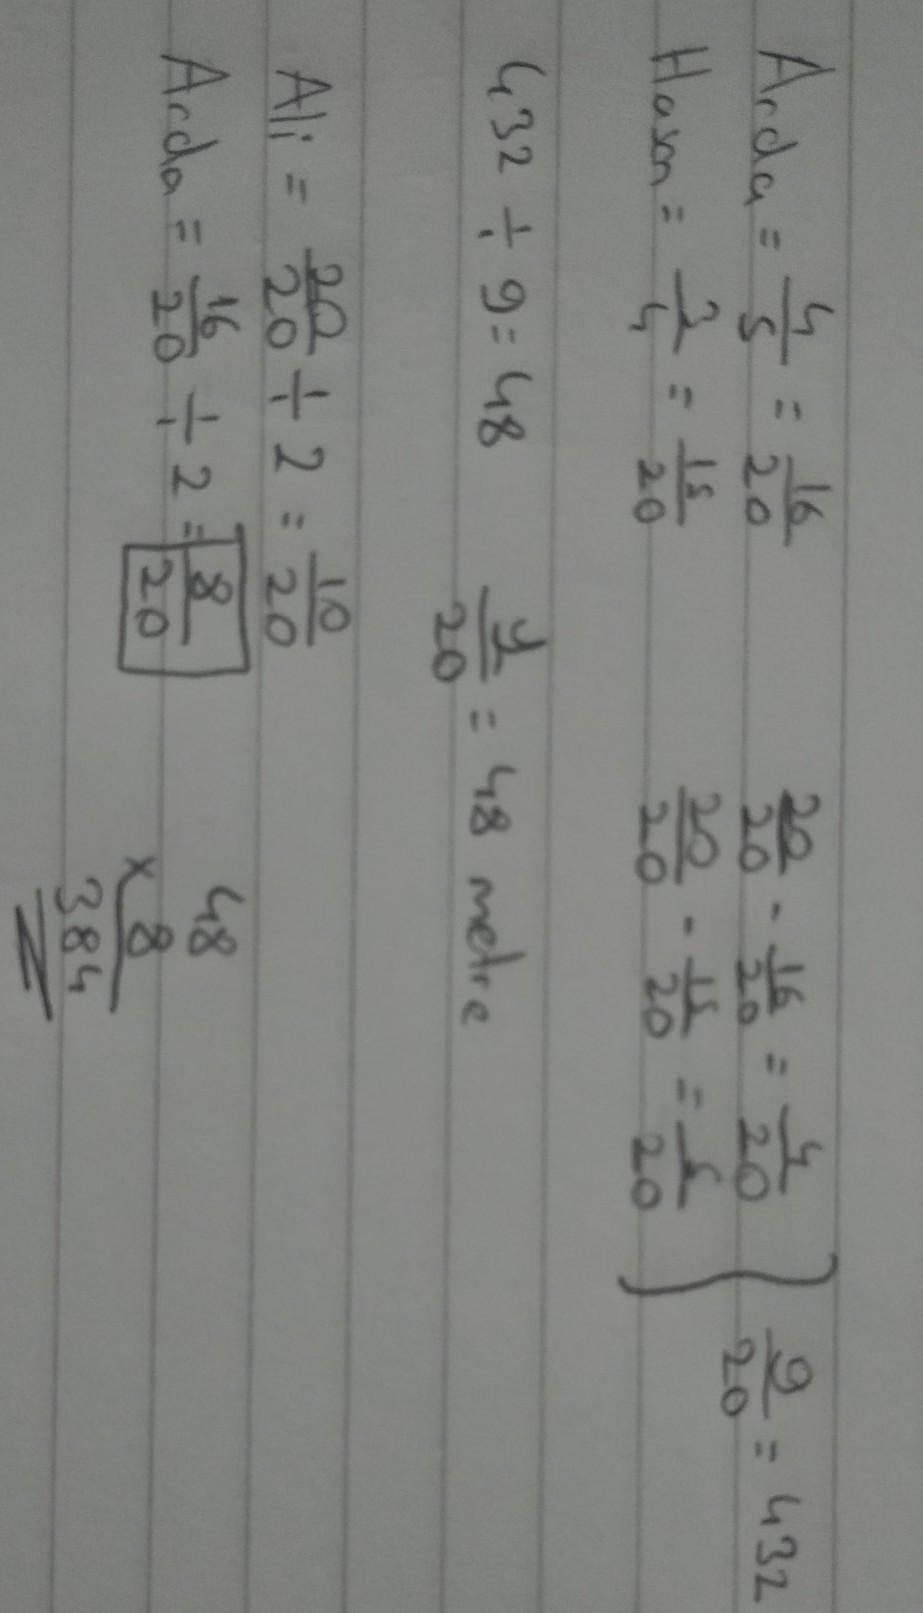 Arda = 4/5 = 16/20    20/20 - 16/20 = 4/20 } 9/20 = 432
Hasan = 3/4 = 15/20    20/20 - 15/20 = 5/20
432 ÷ 9 = 48    1/20 = 48 metre
Ali = 20/20 ÷ 2 = 10/20
Arda = 16/20 ÷ 2 = 8/20
48
x 8
384